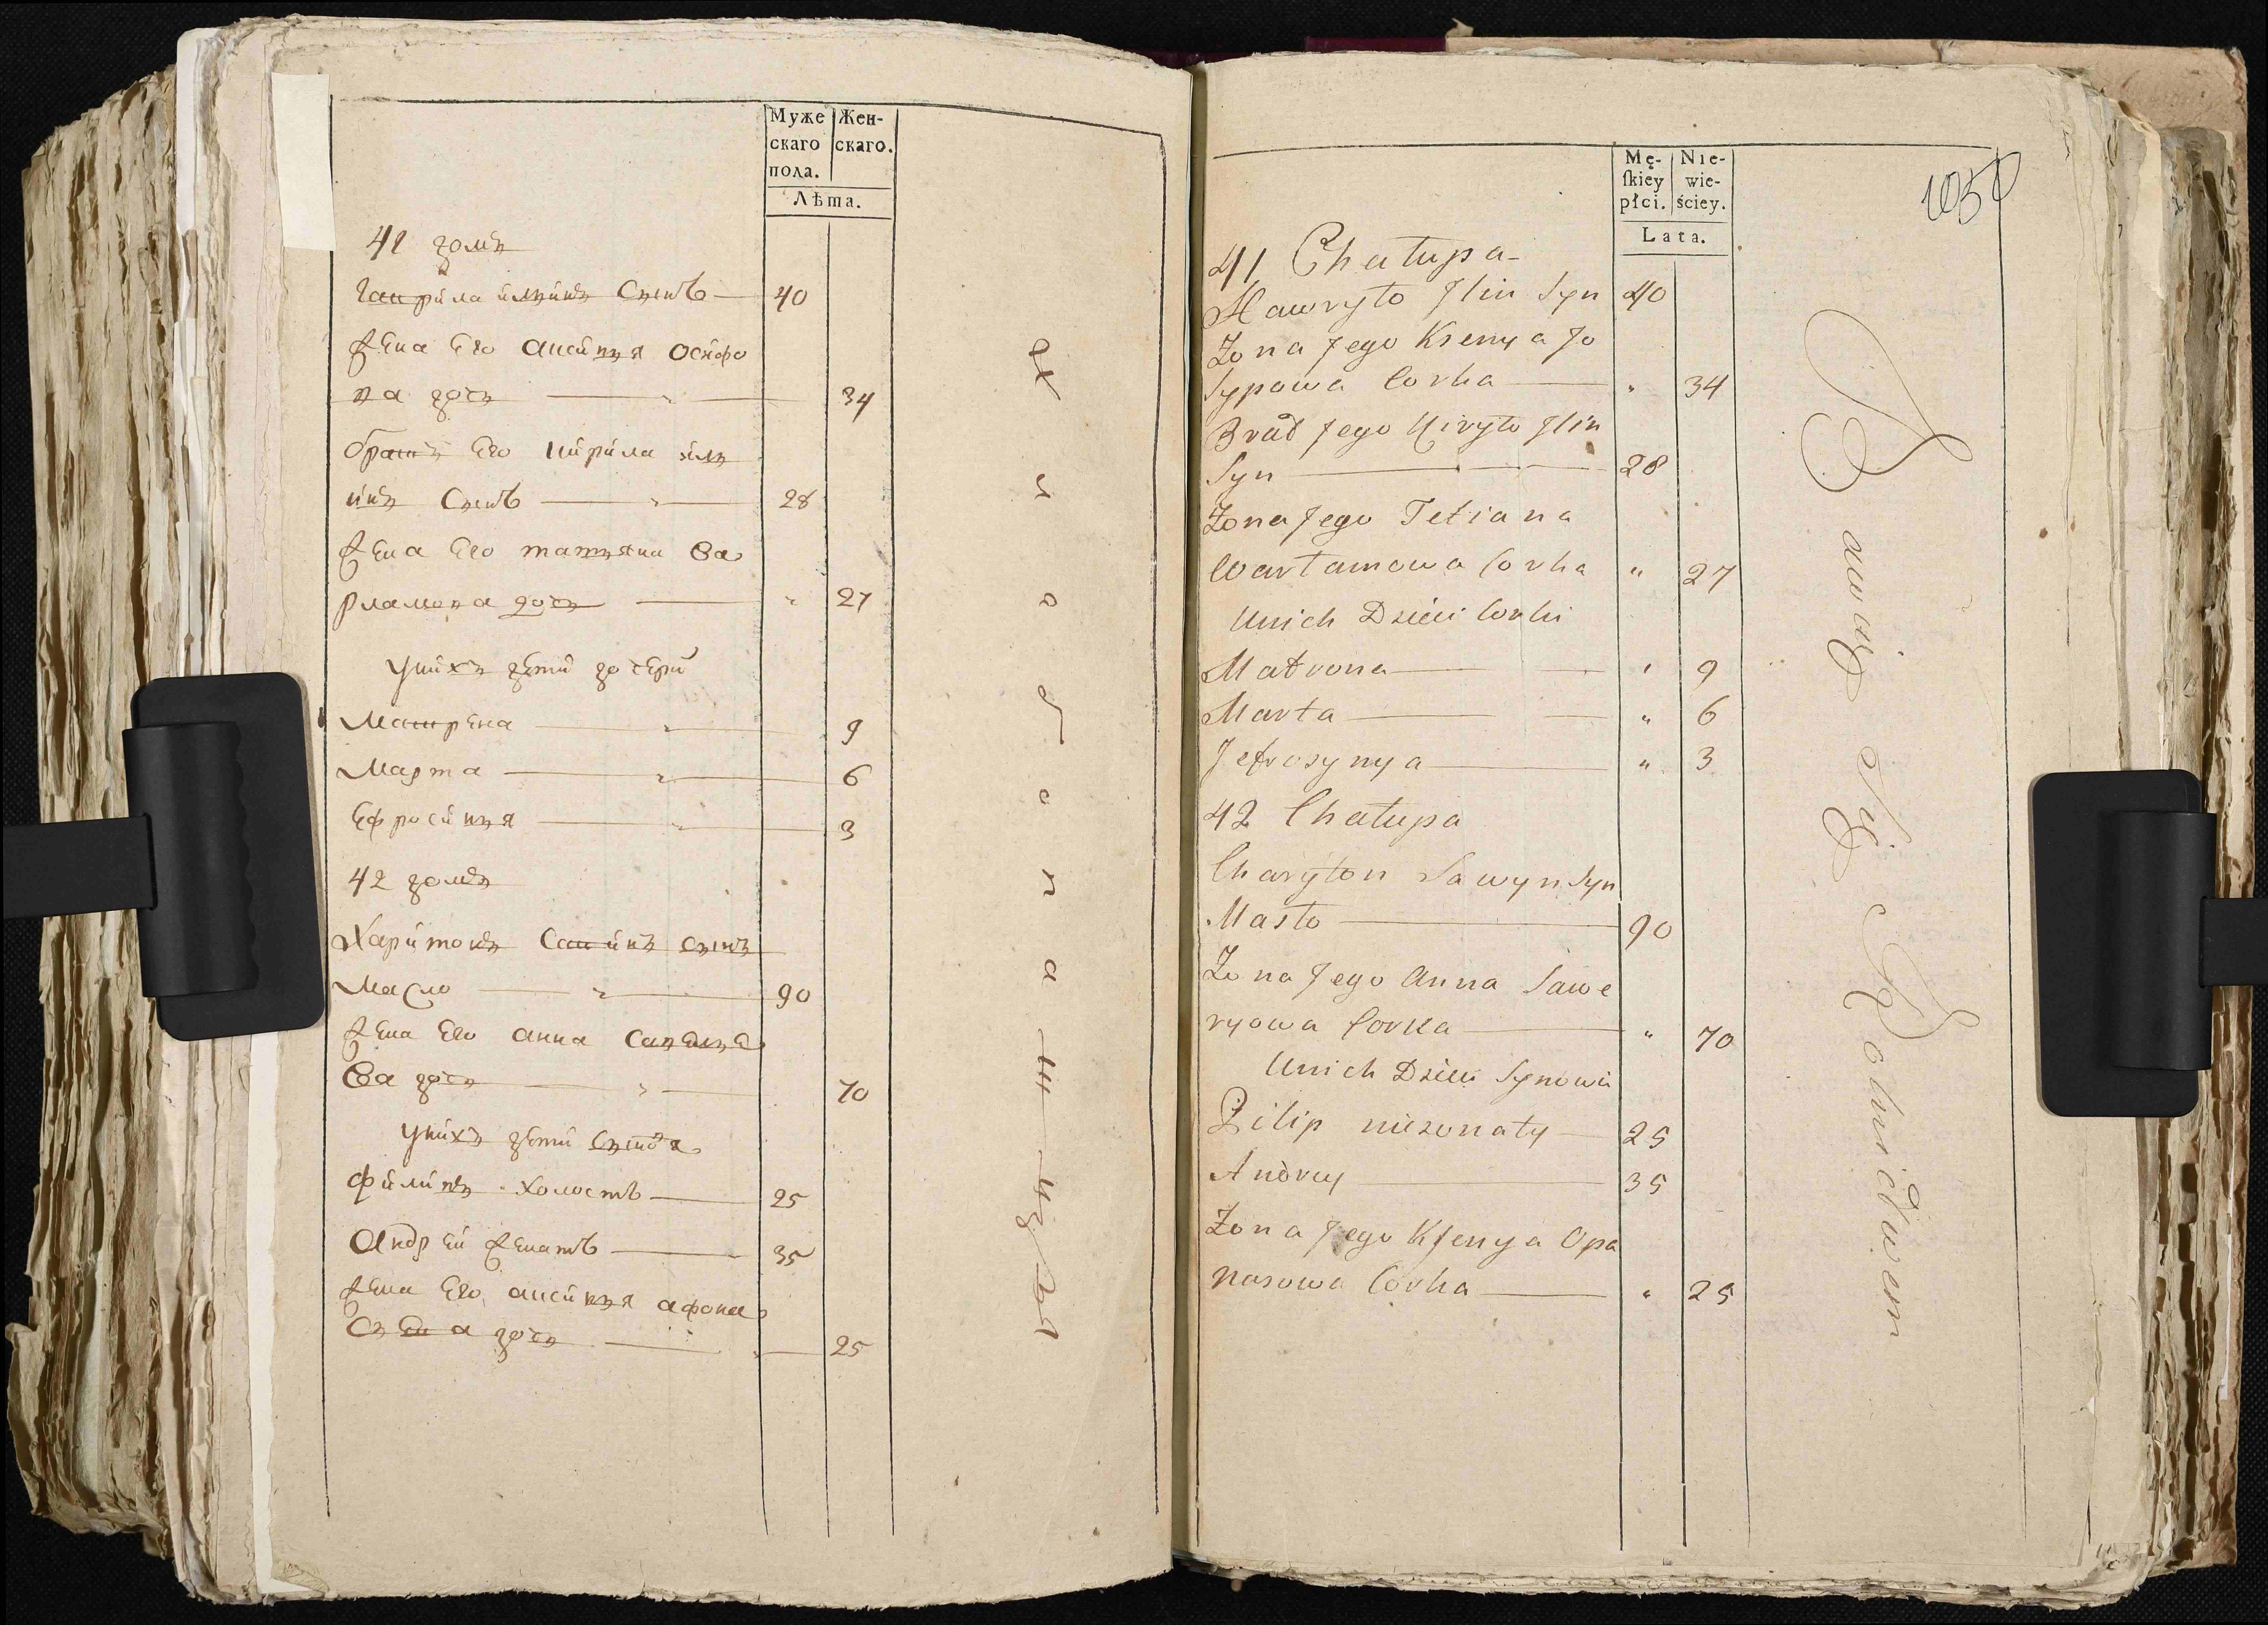 Муже
скаго
пола.
Жен-
скаго.
Лѣта.
41 домъ
Гаврила ильинъ Сынъ — 40
Жена Его Аксинья Осипо
ва дочь — " — 34
братъ Его Кирила иль
инъ Сынъ — " — 28
Жена Его татьяна Ва
рламова дочь — " 27
Унихъ дѣти дочери
Матрена — " — 9
Марта — " — 6
Ефросинья — " — 3
42 домъ
Харитонъ Савинъ Сынъ
Масло — " — 90
Жена Его анна Савелье
ва дочь — " — 70
Унихъ дѣти Сыновя
Филипъ холостъ — 25
Андрей Женатъ — 35
Жена Его аксинья афона
сьева дочь — " — 25
хлебопашцы
Mę-
ſkiey
płci.
Nie-
wie-
ściey.
Lata.
1050
41 Chałupa
Hawryło Jlin Syn 40
Zona Jego Ksenya Jo
sypowa Corka — " 34
Brad Jego Kiryło Jlin
Syn — 28
Zona Jego Tetiana
Wartamowa Corka " 27
Unich Dzieci Corki
Matrona — " 9
Marta — " 6
Jefrosynya — " 3
42 Chałupa
Charyton Sawyn Syn
Masło — 90
Zona Jego Anna Sawe
ryowa Corka — " 70
Unich Dzieci Synowie
Pilip niezonaty — 25
Andrey — 35
Zona Jego Kſenya Opa
nasowa Corka — " 25
Bawią Się Rolnictwem